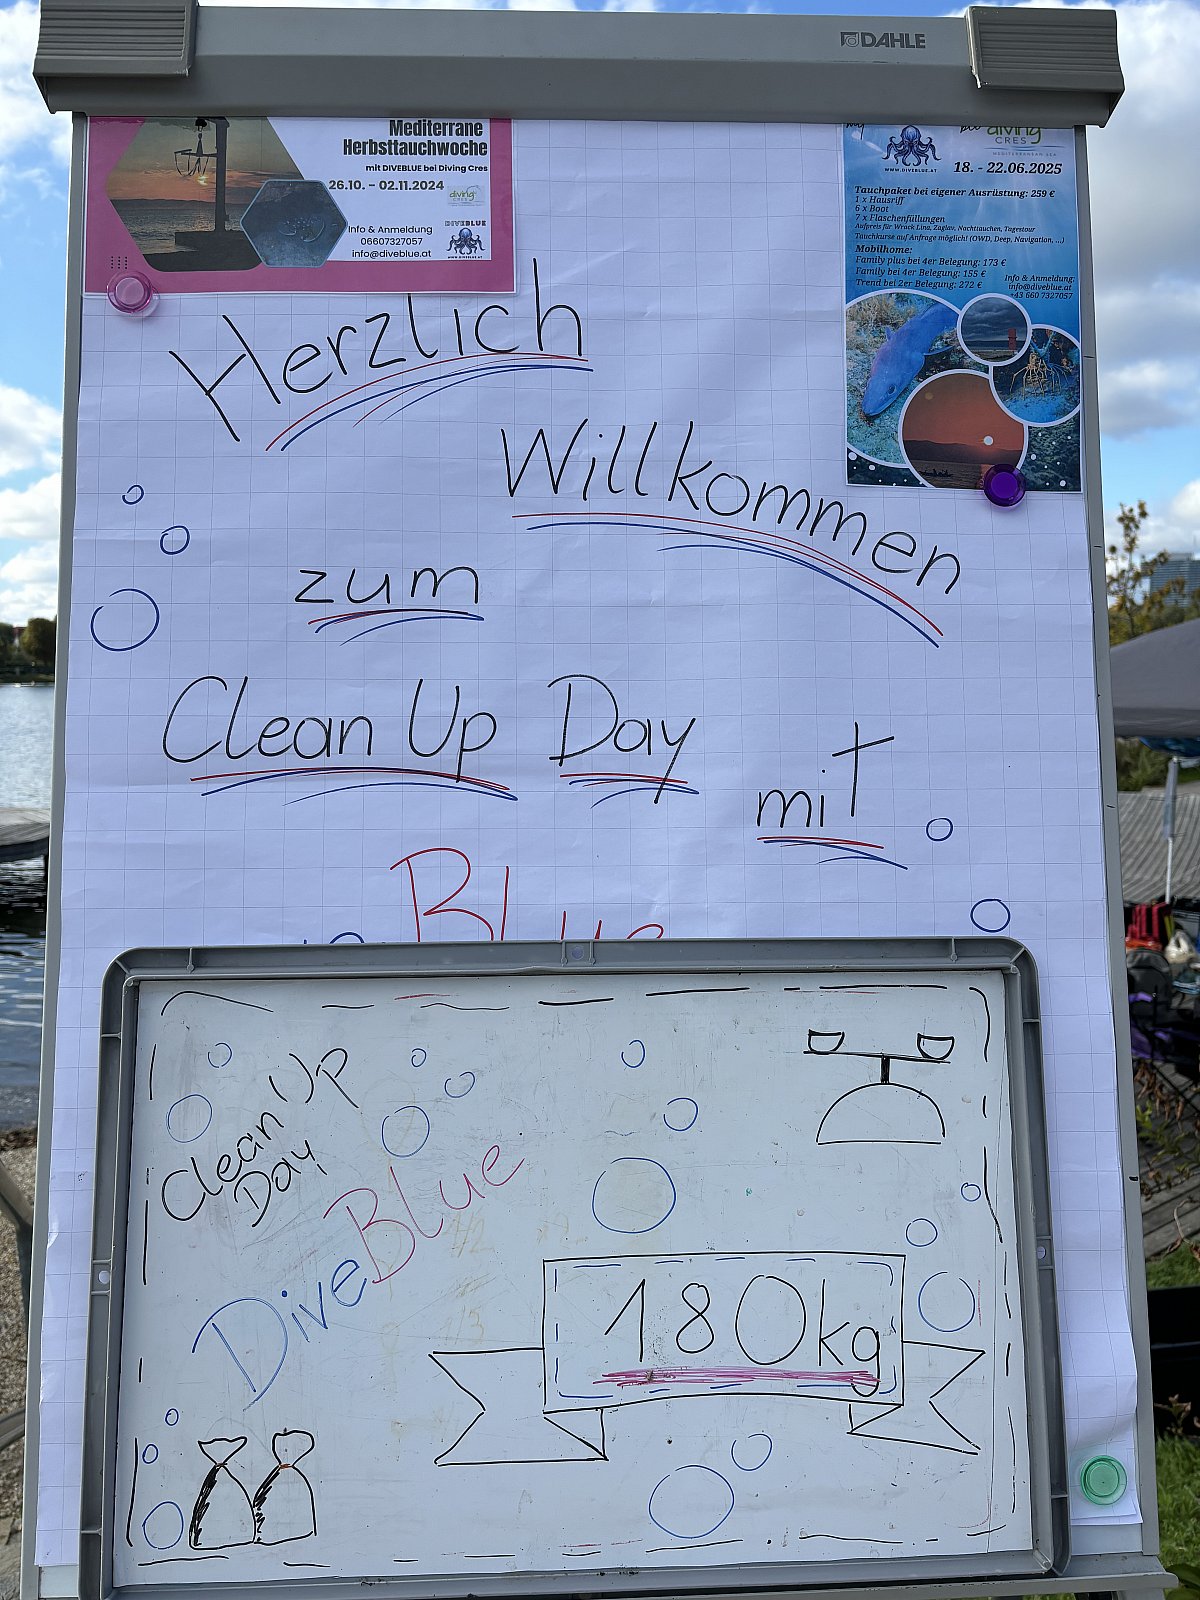 DAHLE
Mediterrane
Herbsttauchwoche
mit DIVEBLUE bei Diving Cres
26.10. – 02.11.2024
diving
DIVEBLUE
Info & Anmeldung
06607327057
info@diveblue.at
WWW.DIVEBLUE.AT
diving
CRES
MEDITERRANEAN SEA
WWW.DIVEBLUE.AT
18. - 22.06.2025
Tauchpaket bei eigener Ausrüstung: 259 €
1 x Hausriff
6 x Boot
7 x Flaschenfüllungen
Aufpreis für Wrack Lina, Zaglav, Nachttauchen, Tagestour
Tauchkurse auf Anfrage möglich! (OWD, Deep, Navigation, ...)
Mobilhome:
Family plus bei 4er Belegung: 173 €
Family bei 4er Belegung: 155 €
Trend bei 2er Belegung: 272 €
Info & Anmeldung:
info@diveblue.at
+43 660 7327057
Herzlich
Willkommen
zum
Clean Up Day
mit
Blue
Clean Up
Day
DiveBlue
180kg